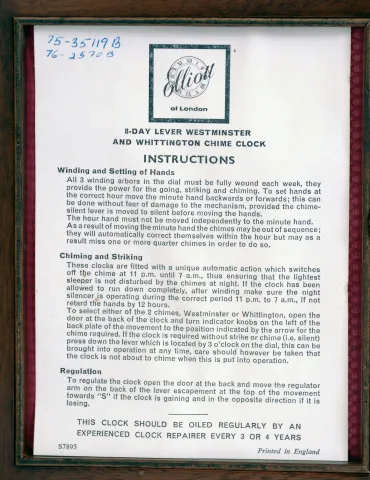 75-35119B
76-2570B
Elliott
of London
8-DAY LEVER WESTMINSTER
AND WHITTINGTON CHIME CLOCK
INSTRUCTIONS
Winding and Setting of Hands
All 3 winding arbors in the dial must be fully wound each week, they
provide the power for the going, striking and chiming. To set hands at
the correct hour move the minute hand backwards or forwards; this can
be done without fear of damage to the mechanism, provided the chime-
silent lever is moved to silent before moving the hands.
The hour hand must not be moved independently to the minute hand.
As a result of moving the minute hand the chimes may be out of sequence;
they will automatically correct themselves within the hour but may as a
result miss one or more quarter chimes in order to do so.
Chiming and Striking
These clocks are fitted with a unique automatic action which switches
off the chime at 11 p.m. until 7 a.m., thus ensuring that the lightest
sleeper is not disturbed by the chimes at night. If the clock has been
allowed to run down completely, after winding make sure the night
silencer is operating during the correct period 11 p.m. to 7 a.m., if not
retard the hands by 12 hours.
To select either of the 2 chimes, Westminster or Whittington, open the
door at the back of the clock and turn indicator knobs on the left of the
back plate of the movement to the position indicated by the arrow for the
chime required. If the clock is required without strike or chime (i.e. silent)
press down the lever which is located by 3 o'clock on the dial, this can be
brought into operation at any time, care should however be taken that
the clock is not about to chime when this is put into operation.
Regulation
To regulate the clock open the door at the back and move the regulator
arm on the back of the lever escapement at the top of the movement
towards "S" if the clock is gaining and in the opposite direction if it is
losing.
THIS CLOCK SHOULD BE OILED REGULARLY BY AN
EXPERIENCED CLOCK REPAIRER EVERY 3 OR 4 YEARS
S7895
Printed in England